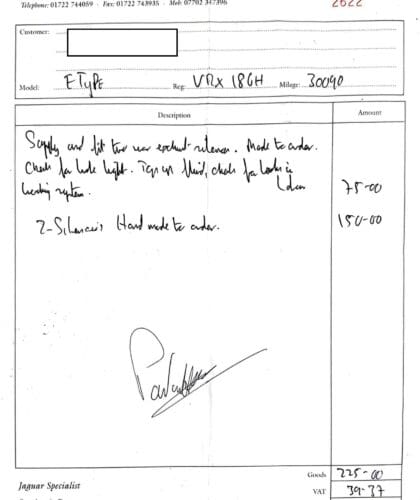 Telephone: 01722 744059 · Fax: 01722 743935 · Mob: 07702 347396
2622
Customer:
Model: E Type Reg: VRX 186H Milage: 30090
Description Amount
Supply and fit two rear exhaust silencers. Made to order.
Check for brake light. Top up fluid, check for leaks in
braking system. Labour 75-00
2-Silencers Hand made to order. 150-00
Goods 225-00
Jaguar Specialist
VAT 39-37